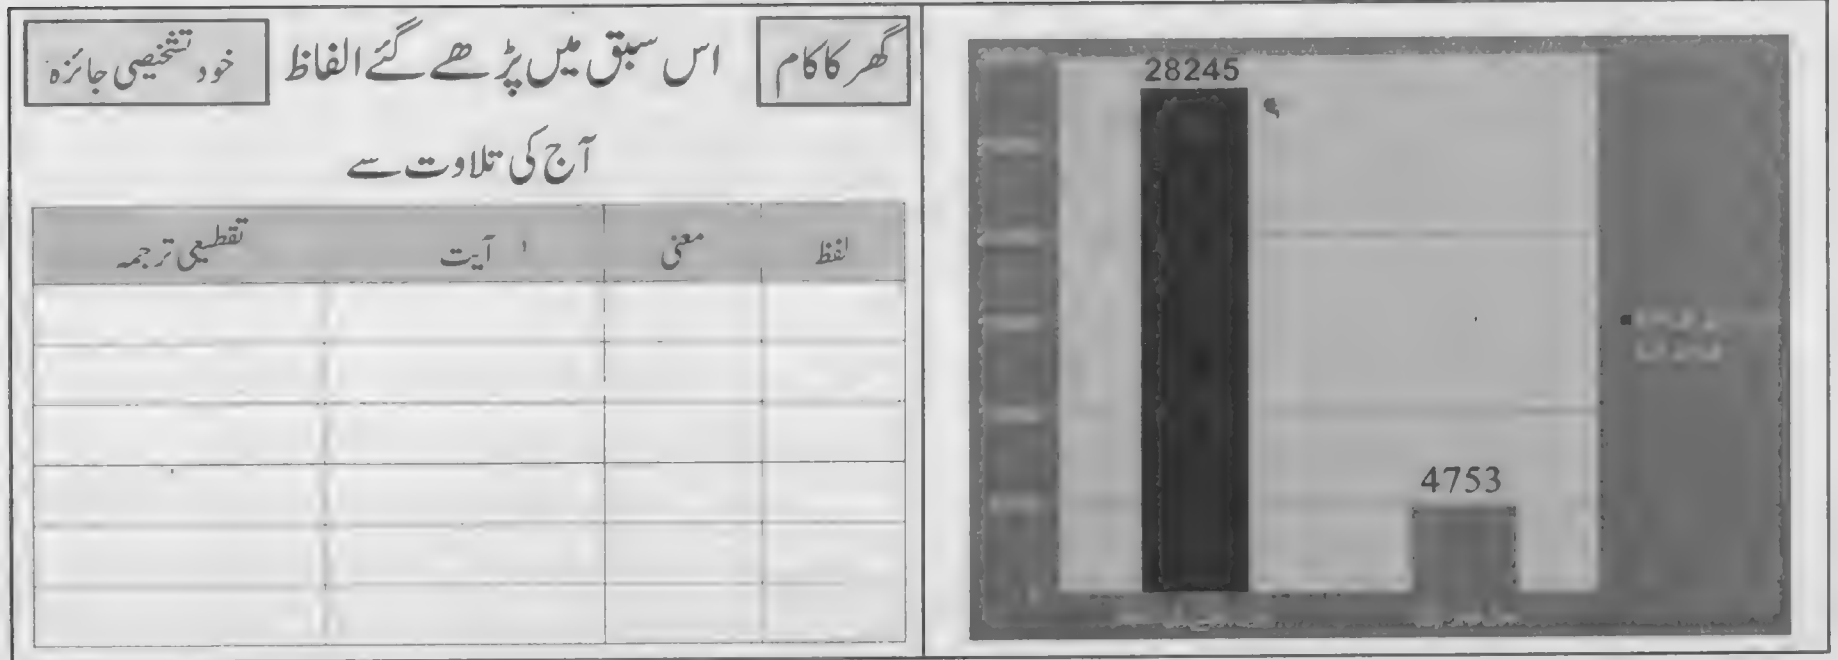 گھر کا کام
اس سبق میں پڑھے گئے الفاظ
خود تشخیصی جائزہ
آج کی تلاوت سے
لفظ معنی آیت تقطیعی ترجمہ
28245
4753